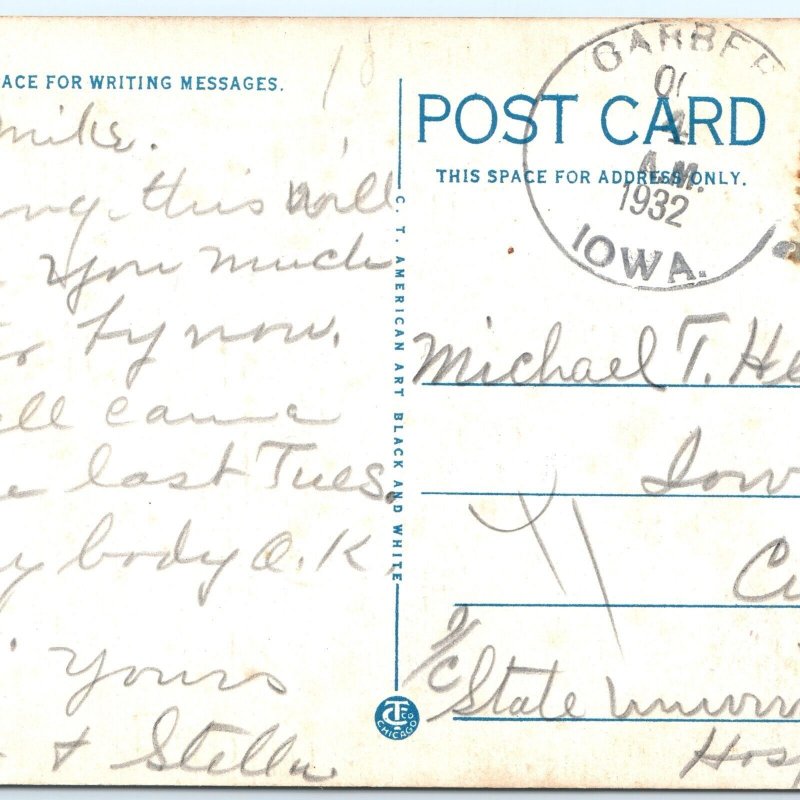 ACE FOR WRITING MESSAGES.
Mike.
this will
you much
by now.
came
last Tues.
body O.K.
Yours
& Stella
C. T. AMERICAN ART BLACK AND WHITE
CTCO
CHICAGO
POST CARD
THIS SPACE FOR ADDRESS ONLY.
GARBER
A.M.
1932
IOWA.
Michael T. He
Iow
Ci
c/o State Univer
Hosp